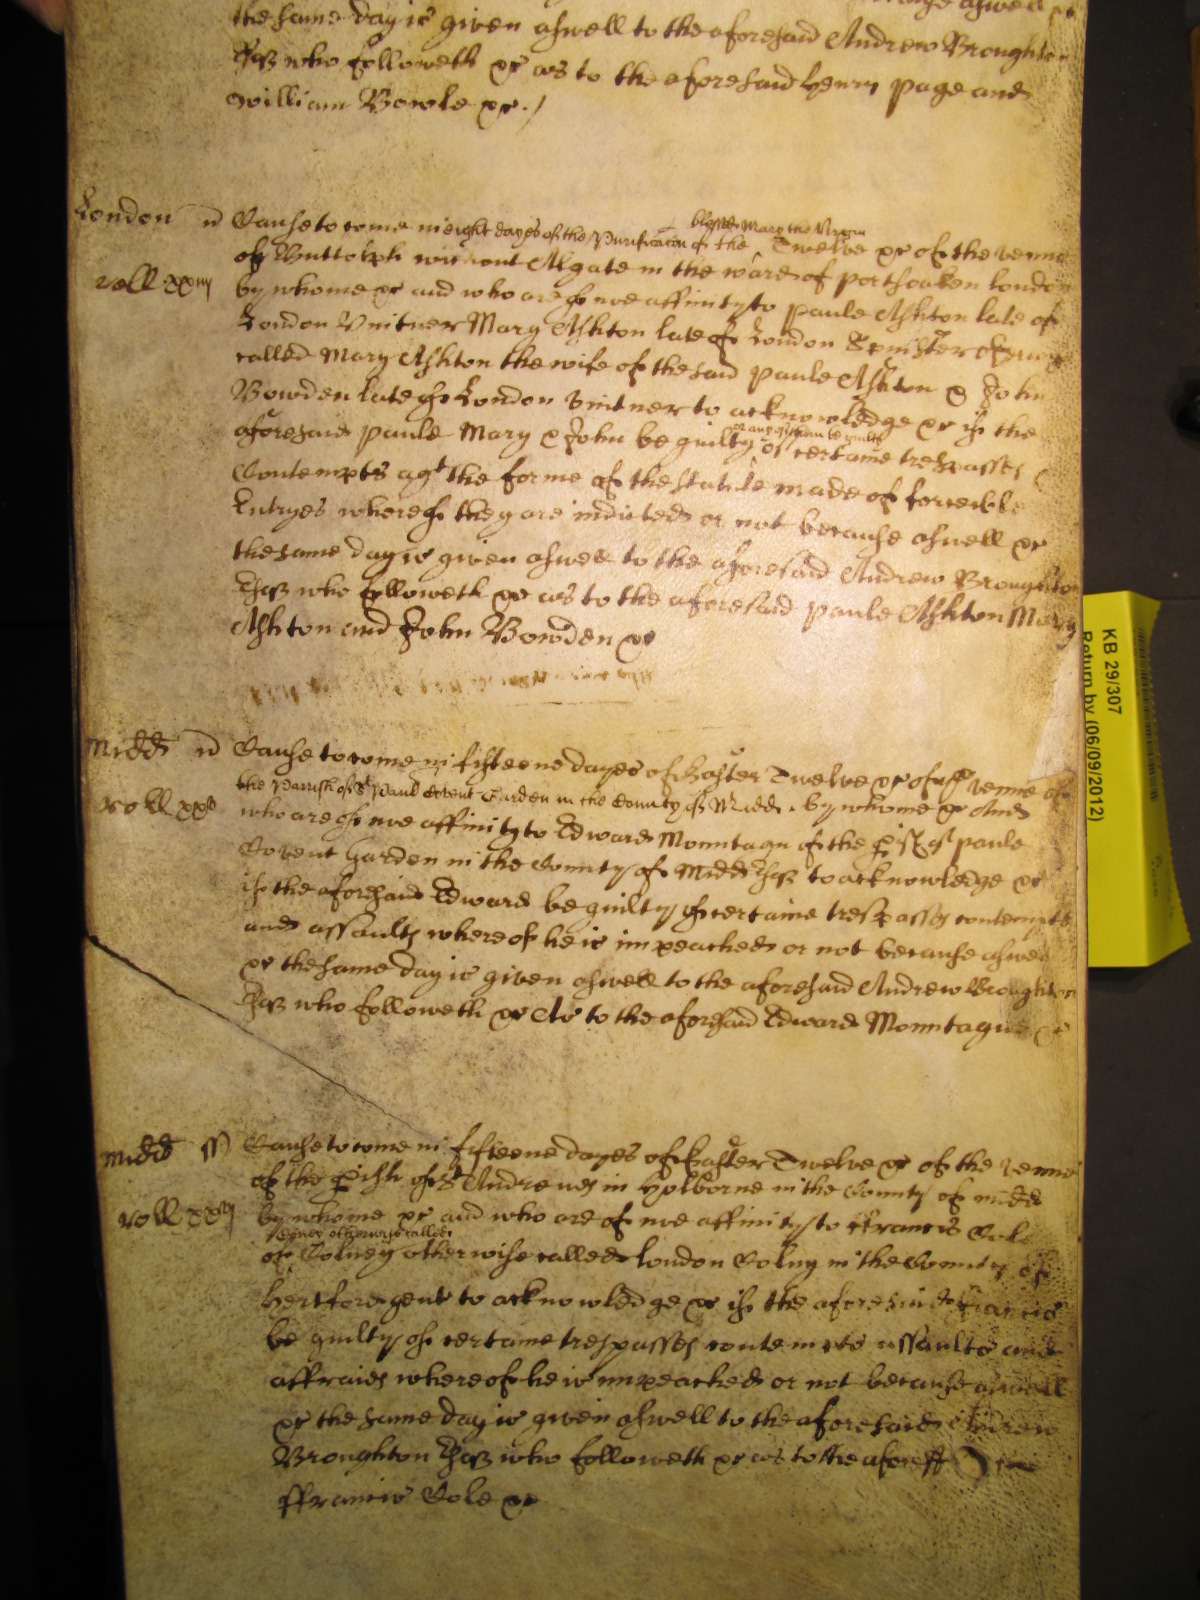 the same day is given aswell to the aforesaid Andrew Broughton
Esqr who followeth &c as to the aforesaid Henry Page and
William Bowle &c./
London
Cause to come in eight dayes of the Purificacon of the blessed Mary the Virgin Twelve &c of the venue
roll xxiiij
of Buttolph without Algate in the ward of Portsoaken London
by whome &c and who are of noe affinity to Paule Ashton late of
London Vintner Mary Ashton late of London Spinster otherwise
called Mary Ashton the wife of the said Paule Ashton & John
Bowden late of London Vintner to acknowledge &c if the
aforesaid Paule Mary & John be guilty or any of them be guilty of certaine trespasses &
Contempts agt the forme of the statute made of forceible
Entryes whereof they are indicted or not because aswell &c
the same day is given aswell to the aforesaid Andrew Broughton
Esqr who followeth &c as to the aforesaid Paule Ashton Mary
Ashton and John Bowden &c
Midd
Cause to come in fifteene dayes of Easter Twelve &c of the venue of
the Parrish of St Paul Covent Garden in the County of Midd. by whome &c And
roll xxv
who are of noe affinity to Edward Monntagu of the pish of Paule
Covent Garden in the County of Midd Esqr to acknowledge &c
if the aforesaid Edward be guilty of certaine trespasses contempts
and assaults whereof he is impeached or not because aswell
&c the same day is given aswell to the aforesaid Andrew Broughton
Esqr who followeth &c As to the aforesaid Edward Monntague &c
Midd ss
Cause to come in fifteene dayes of Easter Twelve &c of the venue
of the pish of St Andrewes in Holborne in the County of Midd
roll
by whome &c and who are of noe affinity to ffrancis Cole
otherwise called
of Colney otherwise called London Colny in the County of
Hertford gent to acknowledge &c if the aforesaid ffrancis
be guilty of certaine trespasses contempts assaults and
affraies whereof he is impeached or not because aswell
&c the same day is given aswell to the aforesaid Andrew
Broughton Esqr who followeth &c as to the afores
ffrancis Cole &c
KB 29/307
Return by (06/09/2012)